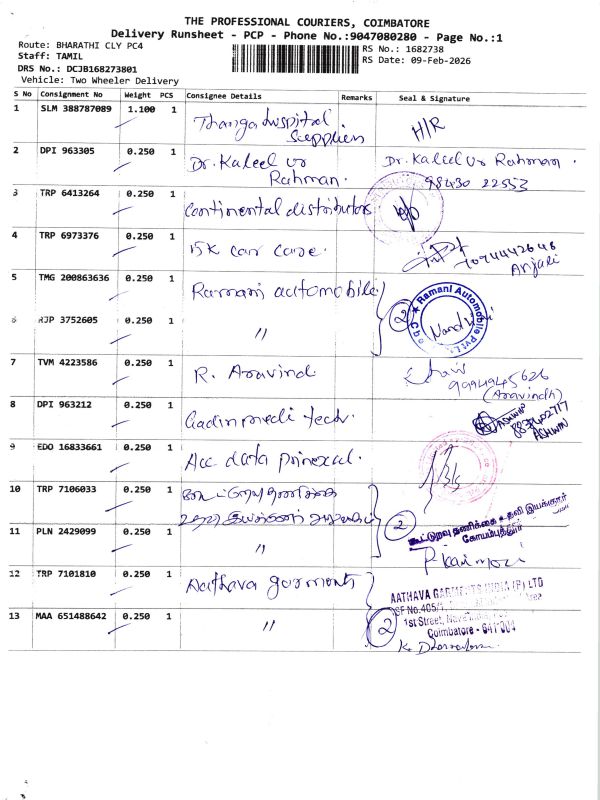 THE PROFESSIONAL COURIERS, COIMBATORE
Delivery Runsheet - PCP - Phone No.:9047080280 - Page No.:1
Route: BHARATHI CLY PC4
RS No.: 1682738
Staff: TAMIL
RS Date: 09-Feb-2026
DRS No.: DCJB168273801
Vehicle: Two Wheeler Delivery
S No Consignment No Weight PCS Consignee Details Remarks Seal & Signature
1 SLM 388787089 1.100 1 Thanga hospital H/R
Suppliers
2 DPI 963305 0.250 1 Dr. Kaleel ur Dr. Kaleel ur Rahman.
Rahman. 98430 22553
3 TRP 6413264 0.250 1 Continental distributors
4 TRP 6973376 0.250 1 15K car care. 7094442646
Anjali
5 TMG 200863636 0.250 1 Ramani automobile Ramani Automobile Pvt
2
6 RJP 3752605 0.250 1 "
7 TVM 4223586 0.250 1 R. Aravind 9994945626
(Aravindh)
8 DPI 963212 0.250 1 medi tech ASHWIN
8838402717
ASHWIN
9 EDO 16833661 0.250 1 Acc. data
10 TRP 7106033 0.250 1
2
கூட்டுறவு தணிக்கை உதவி இயக்குநர்
கோயம்புத்தூர்
11 PLN 2429099 0.250 1 "
12 TRP 7101810 0.250 1 Aathava garments AATHAVA GARMENTS INDIA (P) LTD
SF No.405/
1st Street,
13 MAA 651488642 0.250 1 " 2 Coimbatore - 641 004
K.